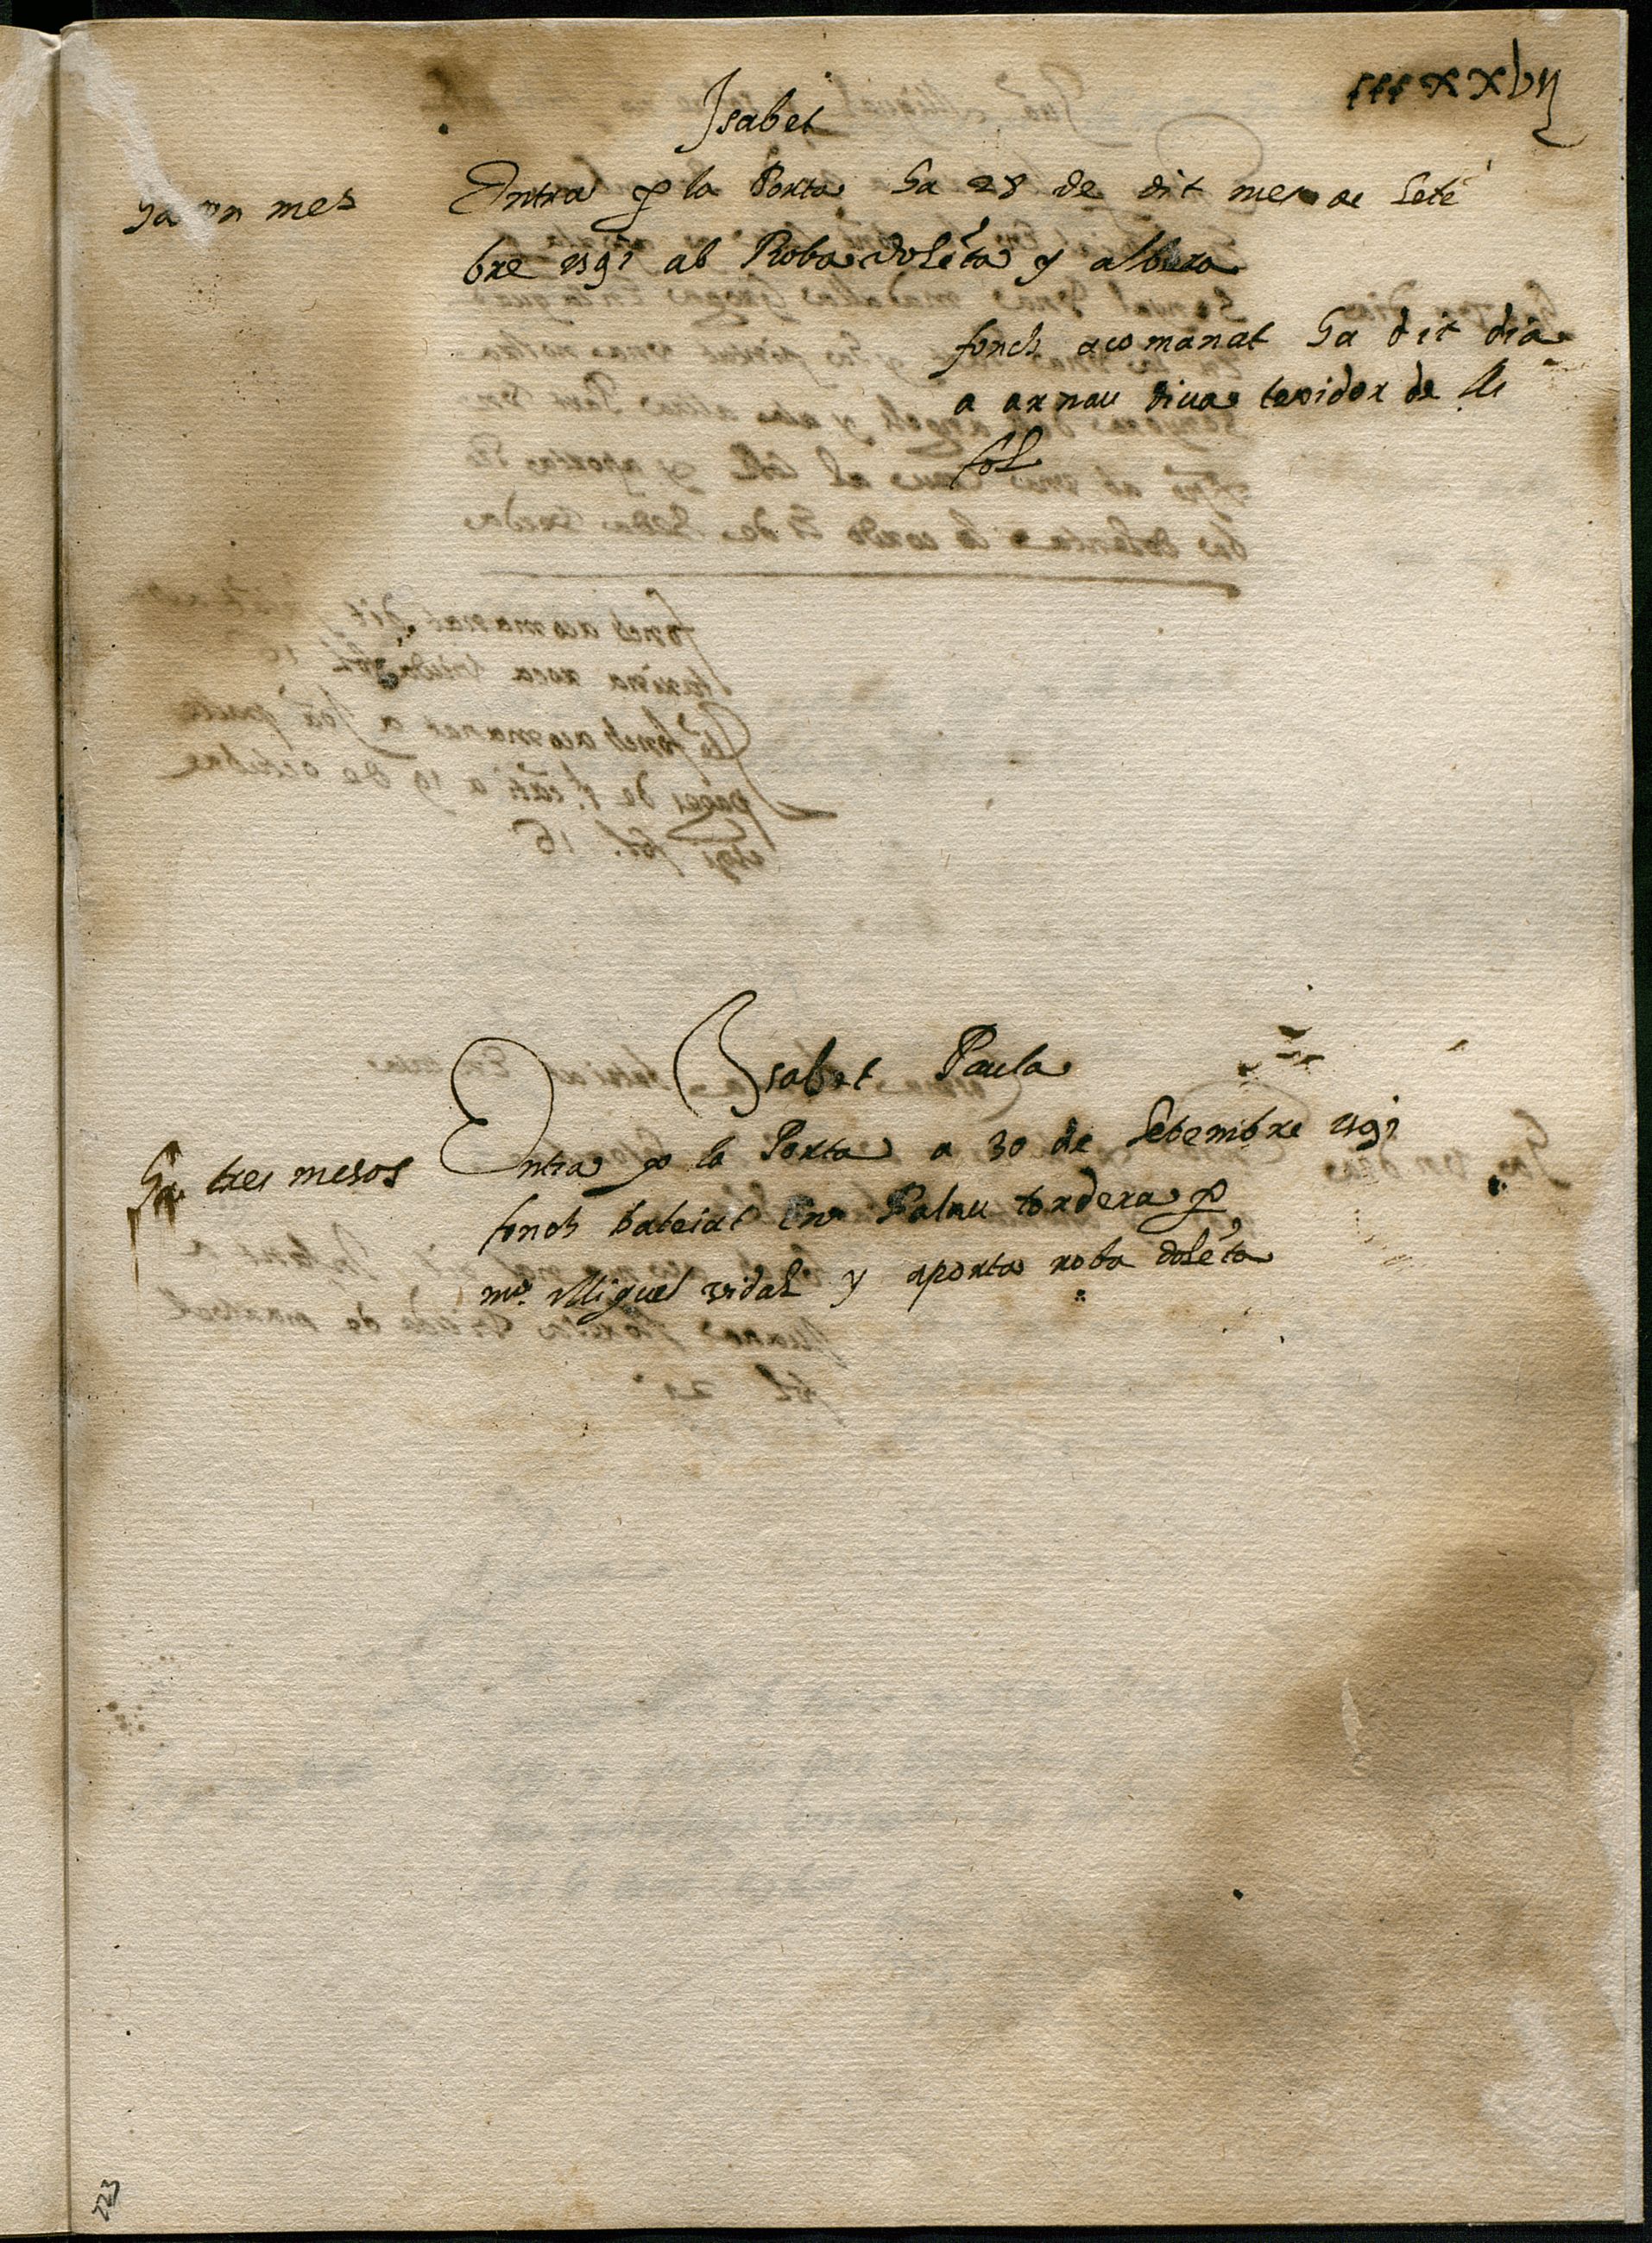 fffxxbij
Isabet
ha un mes
Entra p la Porta ha 28 de dit mes de Setẽ
bre 1591 ab Roba dolẽta y
fonch acomanat ha dit dia
a arnau texidor de lli
fol
Isabet Paula
ha tres mesos
Entra p la Porta a 30 de Setembre 1591
fonch bateiat En Palau tordera p
mº. Miguel vidal y aporta roba dolẽta
223